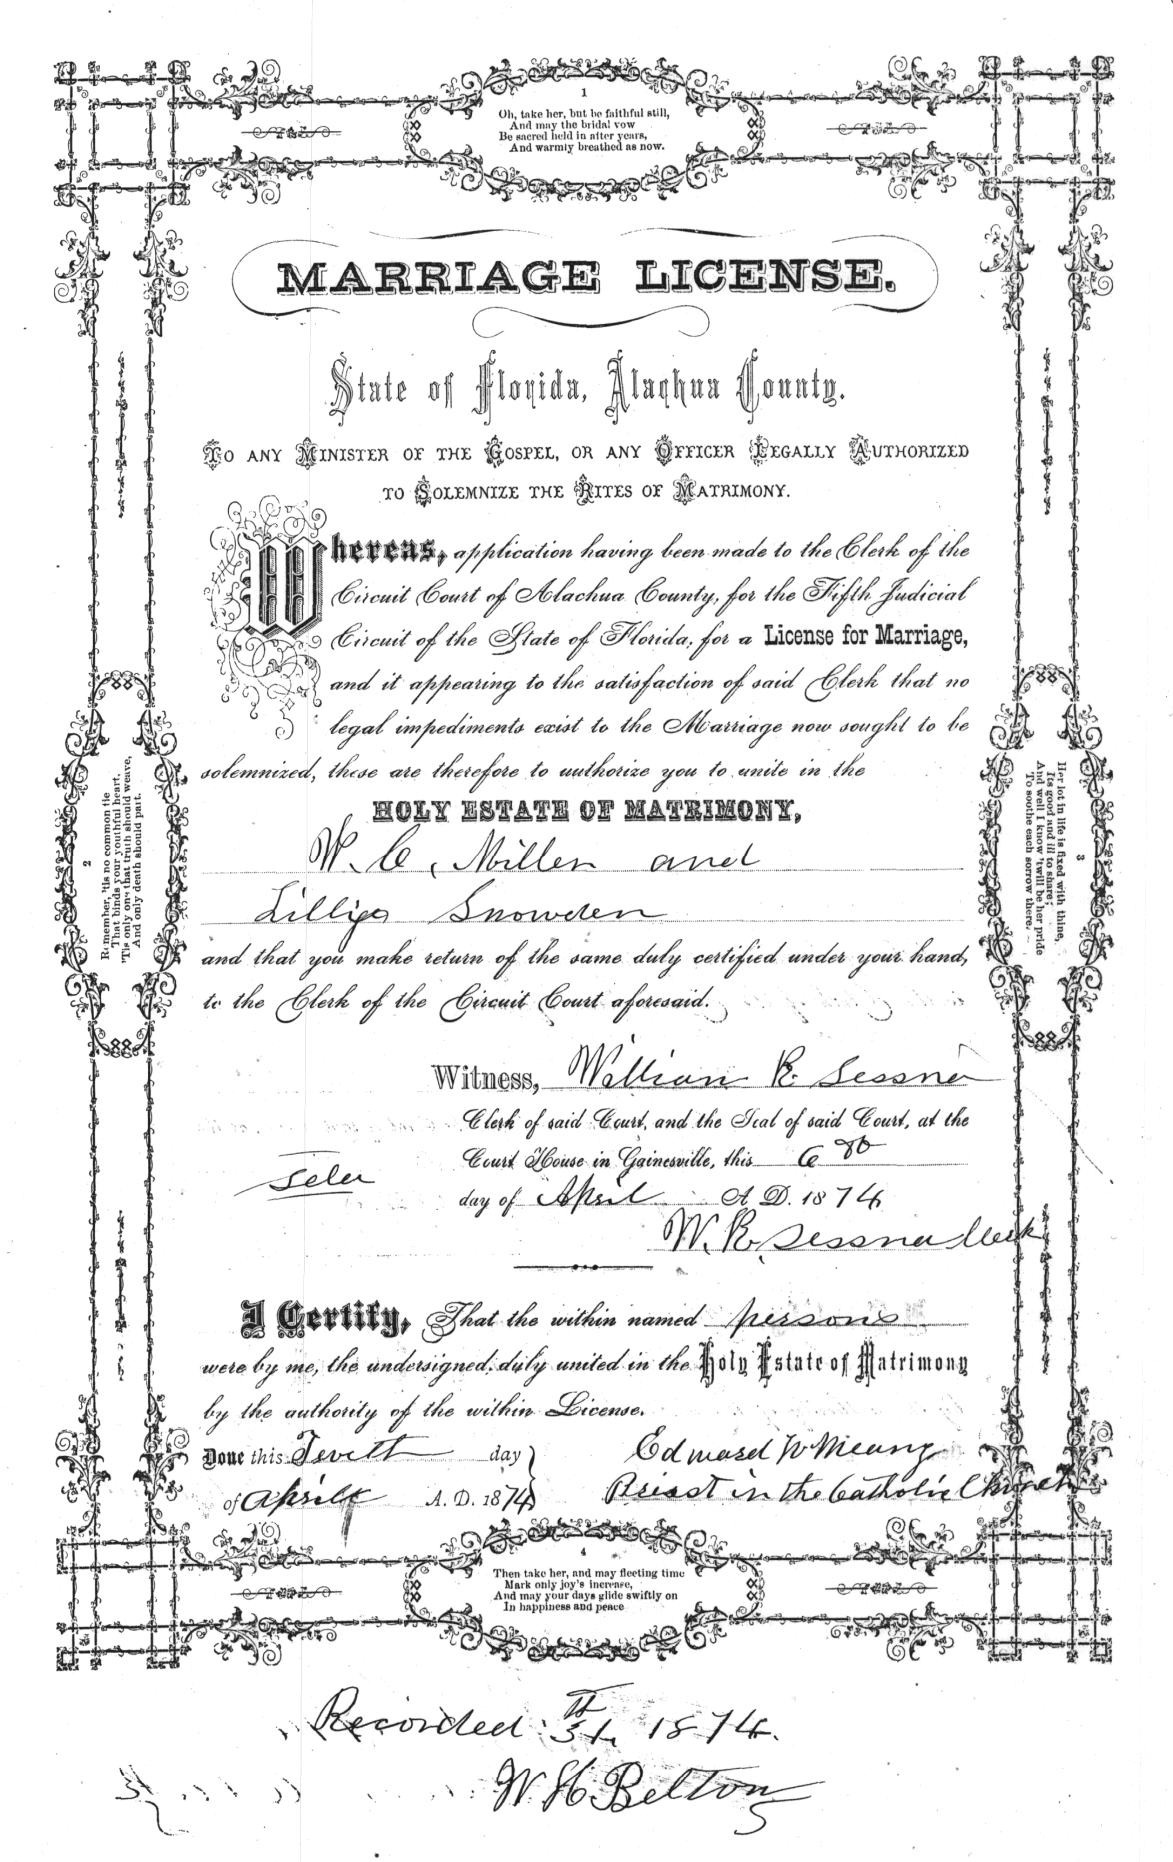 1
Oh, take her, but be faithful still,
And may the bridal vow
Be sacred held in after years,
And warmly breathed as now.
MARRIAGE LICENSE.
State of Florida, Alachua County.
To any Minister of the Gospel, or any Officer Legally Authorized
to Solemnize the Rites of Matrimony.
Whereas, application having been made to the Clerk of the
Circuit Court of Alachua County, for the Fifth Judicial
Circuit of the State of Florida, for a License for Marriage,
and it appearing to the satisfaction of said Clerk that no
legal impediments exist to the Marriage now sought to be
solemnized, these are therefore to authorize you to unite in the
HOLY ESTATE OF MATRIMONY,
W. C. Miller and
Snowden
and that you make return of the same duly certified under your hand,
to the Clerk of the Circuit Court aforesaid.
Witness, William K. Cessna
Clerk of said Court, and the Seal of said Court, at the
Court House in Gainesville, this 6th
Seal
day of April A. D. 1874
W. K. Cessna Clerk
I Certify, That the within named persons
were by me, the undersigned, duly united in the Holy Estate of Matrimony
by the authority of the within License.
Done this day
of April A. D. 1874
Edward W
Priest in the Catholic Church
2
Remember, 'tis no common tie
That binds your youthful heart,
'Tis only one that truth should weave,
And only death should part.
3
Her lot in life is fixed with thine,
Its good and ill to share;
And well I know 'twill be her pride
To soothe each sorrow there.
4
Then take her, and may fleeting time
Mark only joy's increase,
And may your days glide swiftly on
In happiness and peace
Recorded 1874.
W H Belton